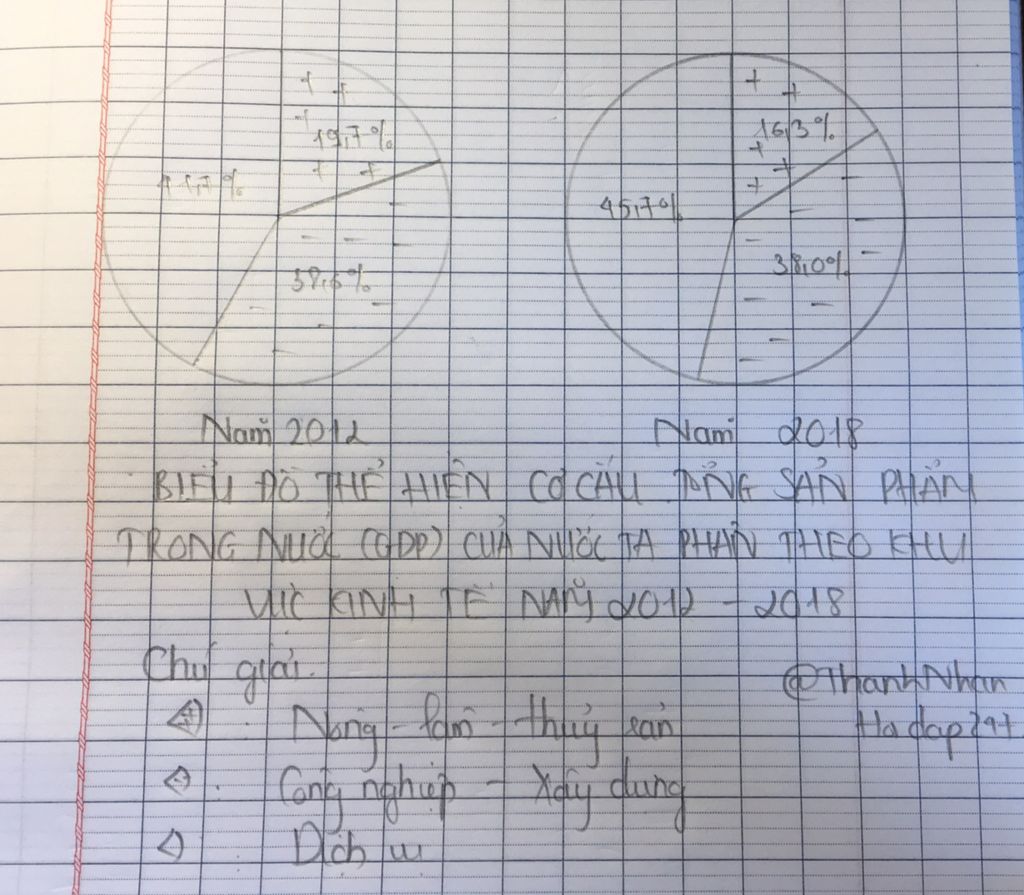 19,7%
41,7%
38,6%
16,3%
45,7%
38,0%
Năm 2012
Năm 2018
BIỂU ĐỒ THỂ HIỆN CƠ CẤU TỔNG SẢN PHẨM
TRONG NƯỚC (GDP) CỦA NƯỚC TA PHÂN THEO KHU
VỰC KINH TẾ NĂM 2012 - 2018
Chú giải.
: Nông - lâm - thuỷ sản
: Công nghiệp - Xây dựng
: Dịch vụ
@ThanhNhan
Hoidap247